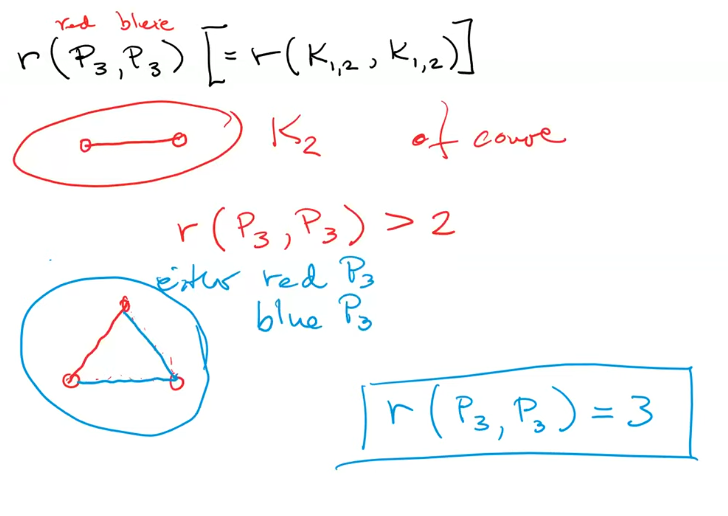 red blue
r(P₃, P₃) [= r(K₁,₂, K₁,₂)]
K₂ of course
r(P₃, P₃) > 2
either red P₃
blue P₃
r(P₃, P₃) = 3